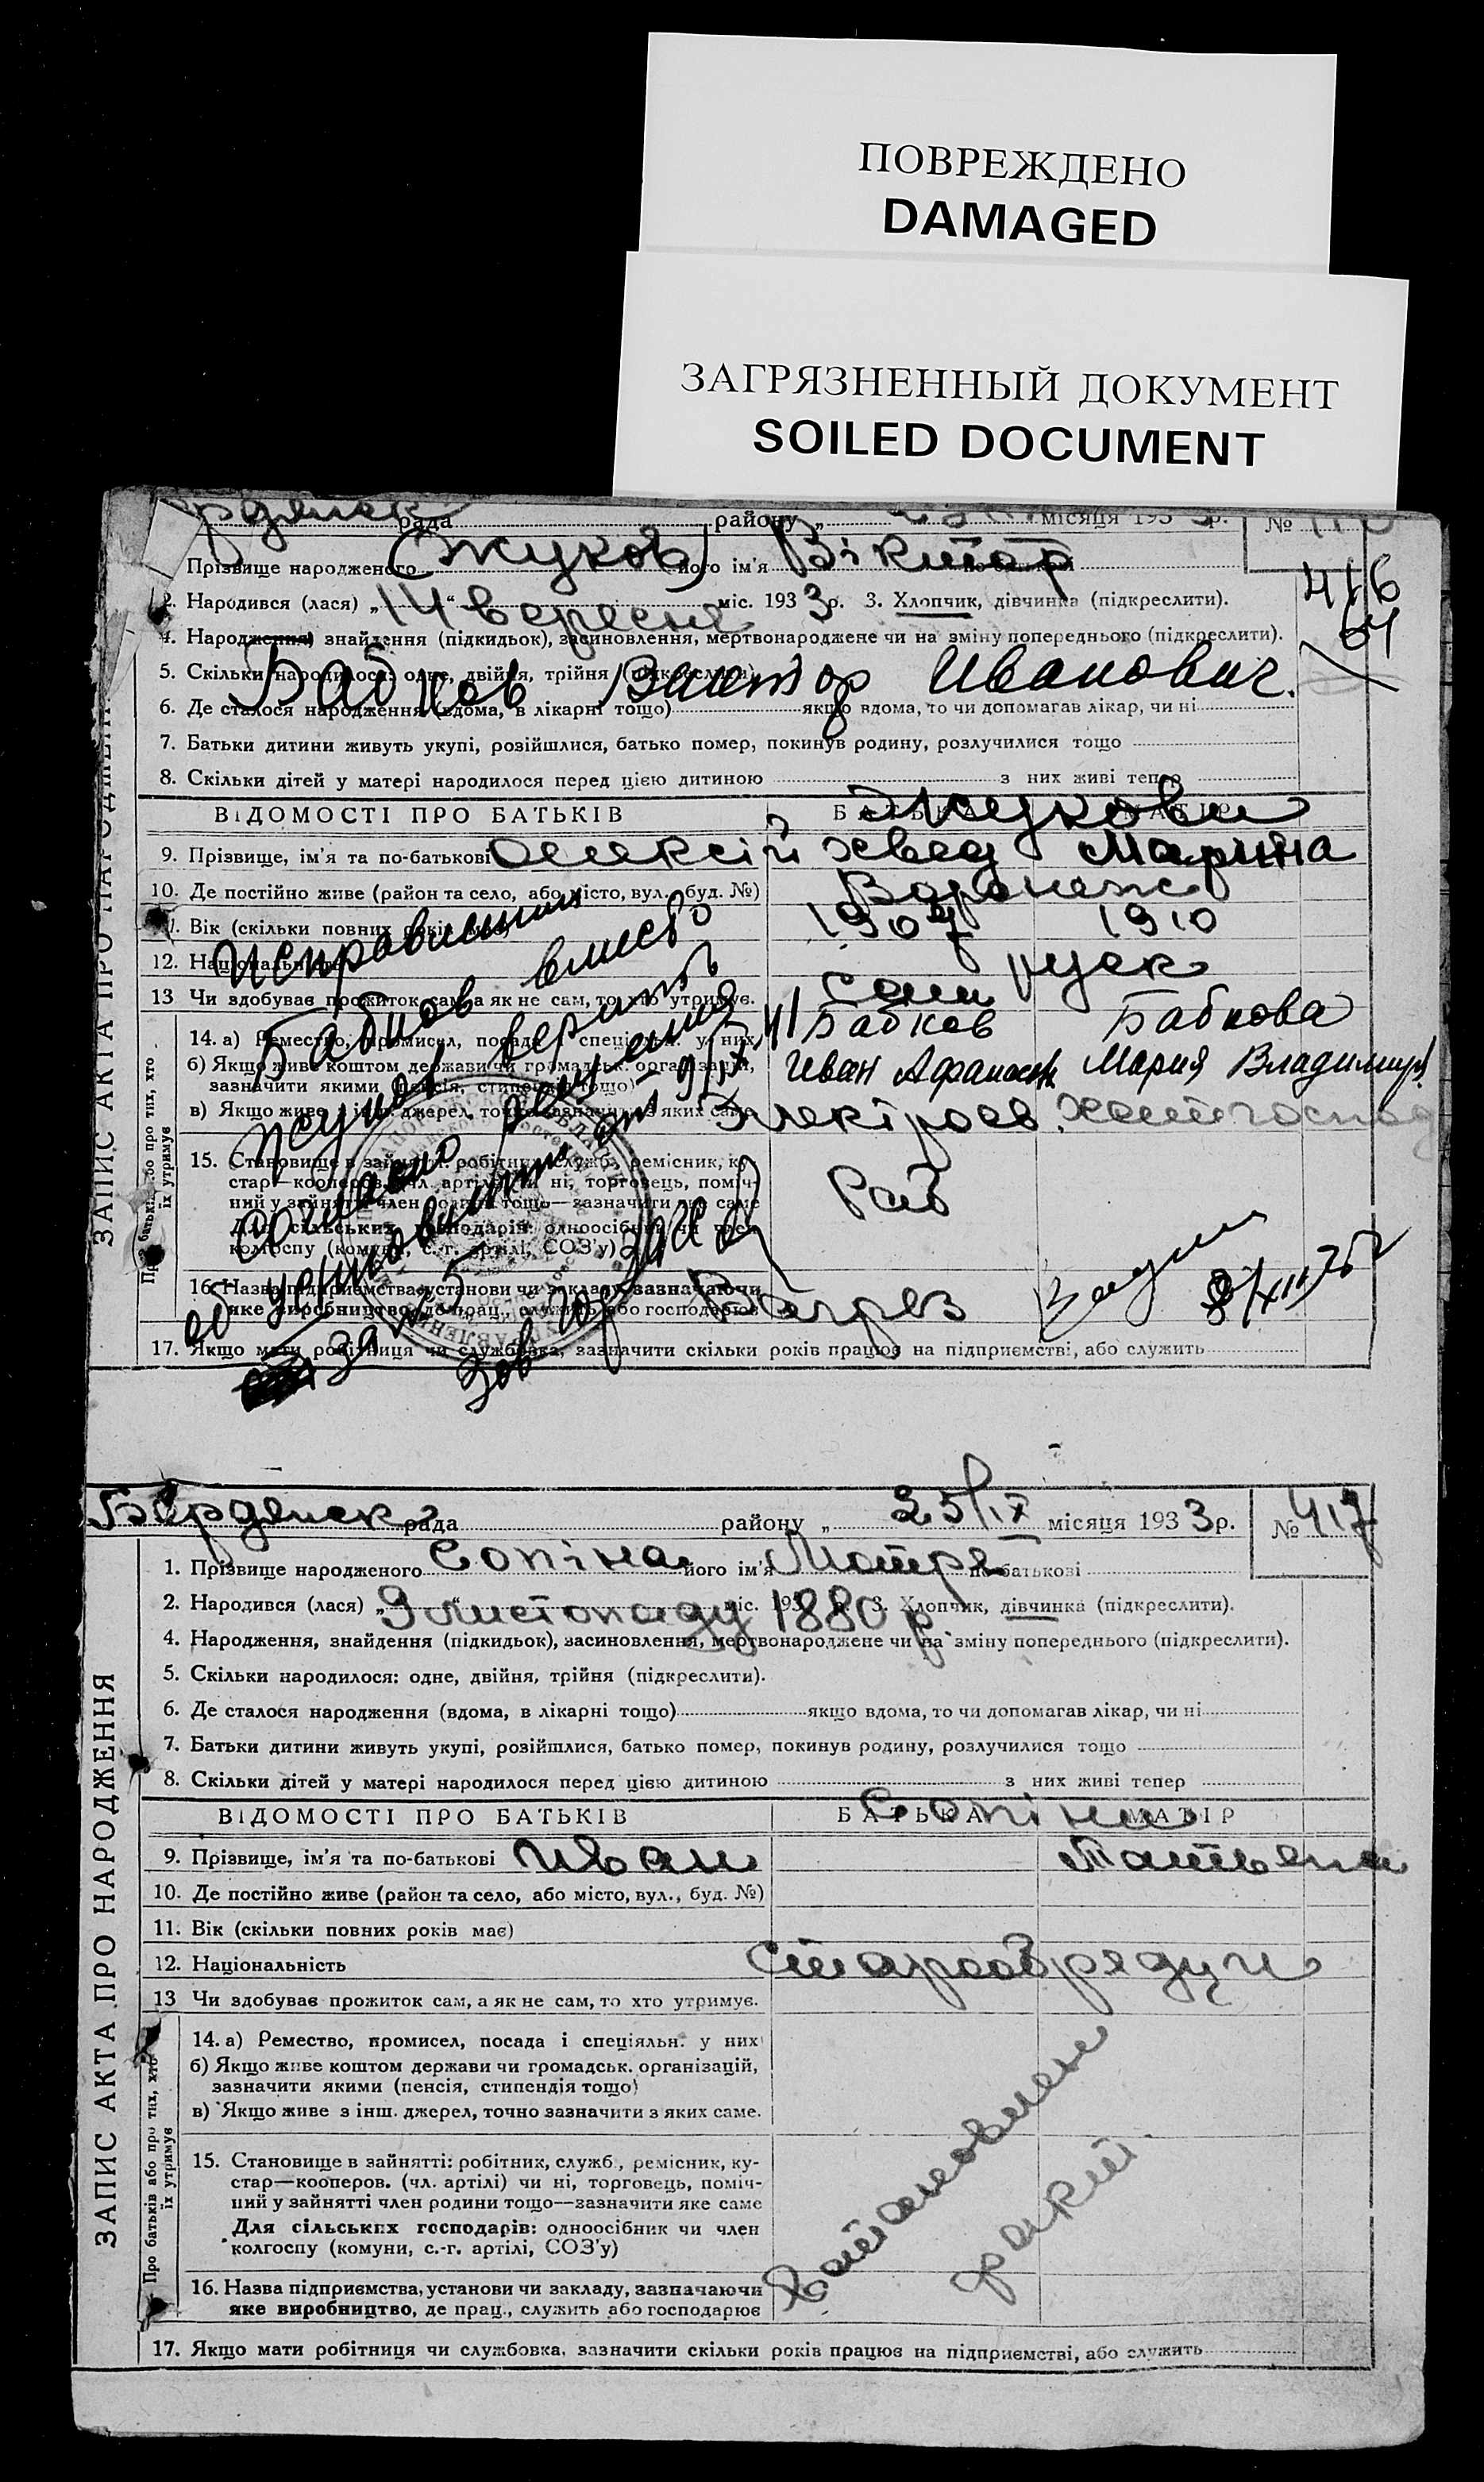 ПОВРЕЖДЕНО
DAMAGED
ЗАГРЯЗНЕННЫЙ ДОКУМЕНТ
SOILED DOCUMENT
рдянск рада району „ місяця 1933 р. №
416
Прізвище народженого (Жуков) його ім'я Віктор
2. Народився (лася) „14" вересня міс. 1933 р. 3. Хлопчик, дівчинка (підкреслити).
4. Народження, знайдення (підкидьок), засиновлення, мертвонароджене чи на зміну попереднього (підкреслити).
5. Скільки народилося: одне, двійня, трійня (підкреслити).
Бабков Виктор Иванович.
6. Де сталося народження (вдома, в лікарні тощо) якщо вдома, то чи допомагав лікар, чи ні
7. Батьки дитини живуть укупі, розійшлися, батько помер, покинув родину, розлучилися тощо
8. Скільки дітей у матері народилося перед цією дитиною з них живі тепер
ВІДОМОСТІ ПРО БАТЬКІВ БАТЬКА МАТІР
Жукови
9. Прізвище, ім'я та по-батькові Олексій Марина
10. Де постійно живе (район та село, або місто, вул., буд. №) Воронеж
11. Вік (скільки повних років має) 1907 1910
12. Національність руск
13 Чи здобував прожиток сам, а як не сам, то хто утримує. сами
14. а) Ремество, промисел, посада і спеціяльн. у них Бабков Бабкова
б) Якщо живе коштом держави чи громадськ. організацій, Иван Афанасьев. Мария Владимир.
зазначити якими (пенсія, стипендія тощо)
в) Якщо живе з інш. джерел, точно зазначити з яких саме. Электросв.
15. Становище в зайнятті: робітник, служб., ремісник, ку-
стар—кооперов. (чл. артілі) чи ні, торговець, поміч- Раб
ний у зайнятті член родини тощо—зазначити яке саме
Для сільських господарів: одноосібник чи член
колгоспу (комуни, с.-г. артілі, СОЗ'у)
16. Назва підприємства, установи чи закладу, зазначаючи
яке виробництво, де прац., служить або господарює
17. Якщо мати робітниця чи службовка, зазначити скільки років працює на підприємстві, або служить
Исправленным
Бабков вместо
Жуков верить
согласно решения
об усыновлении от 9/IX 41
за № 5
Зав Гор ЗАГС
ЗАПИС АКТА ПРО НАРОДЖЕННЯ
Про батьків або про тих, хто
їх утримує
Бердянск рада району „ 25/IX місяця 1933 р. № 417
1. Прізвище народженого Сопіна його ім'я Мотря по-батькові
2. Народився (лася) „ 9 листопаду міс. 193 1880 р 3. Хлопчик, дівчинка (підкреслити).
4. Народження, знайдення (підкидьок), засиновлення, мертвонароджене чи на зміну попереднього (підкреслити).
5. Скільки народилося: одне, двійня, трійня (підкреслити).
6. Де сталося народження (вдома, в лікарні тощо) якщо вдома, то чи допомагав лікар, чи ні
7. Батьки дитини живуть укупі, розійшлися, батько помер, покинув родину, розлучилися тощо
8. Скільки дітей у матері народилося перед цією дитиною з них живі тепер
ВІДОМОСТІ ПРО БАТЬКІВ БАТЬКА МАТІР
Сопіни
9. Прізвище, ім'я та по-батькові Иван Татьяна
10. Де постійно живе (район та село, або місто, вул., буд. №)
11. Вік (скільки повних років має)
12. Національність старообрядци
13 Чи здобував прожиток сам, а як не сам, то хто утримує.
14. а) Ремество, промисел, посада і спеціяльн. у них
б) Якщо живе коштом держави чи громадськ. організацій,
зазначити якими (пенсія, стипендія тощо)
в) Якщо живе з інш. джерел, точно зазначити з яких саме.
15. Становище в зайнятті: робітник, служб., ремісник, ку-
стар—кооперов. (чл. артілі) чи ні, торговець, поміч-
ний у зайнятті член родини тощо—зазначити яке саме
Для сільських господарів: одноосібник чи член
колгоспу (комуни, с.-г. артілі, СОЗ'у)
16. Назва підприємства, установи чи закладу, зазначаючи
яке виробництво, де прац., служить або господарює
17. Якщо мати робітниця чи службовка, зазначити скільки років працює на підприємстві, або служить
ЗАПИС АКТА ПРО НАРОДЖЕННЯ
Про батьків або про тих, хто
їх утримує